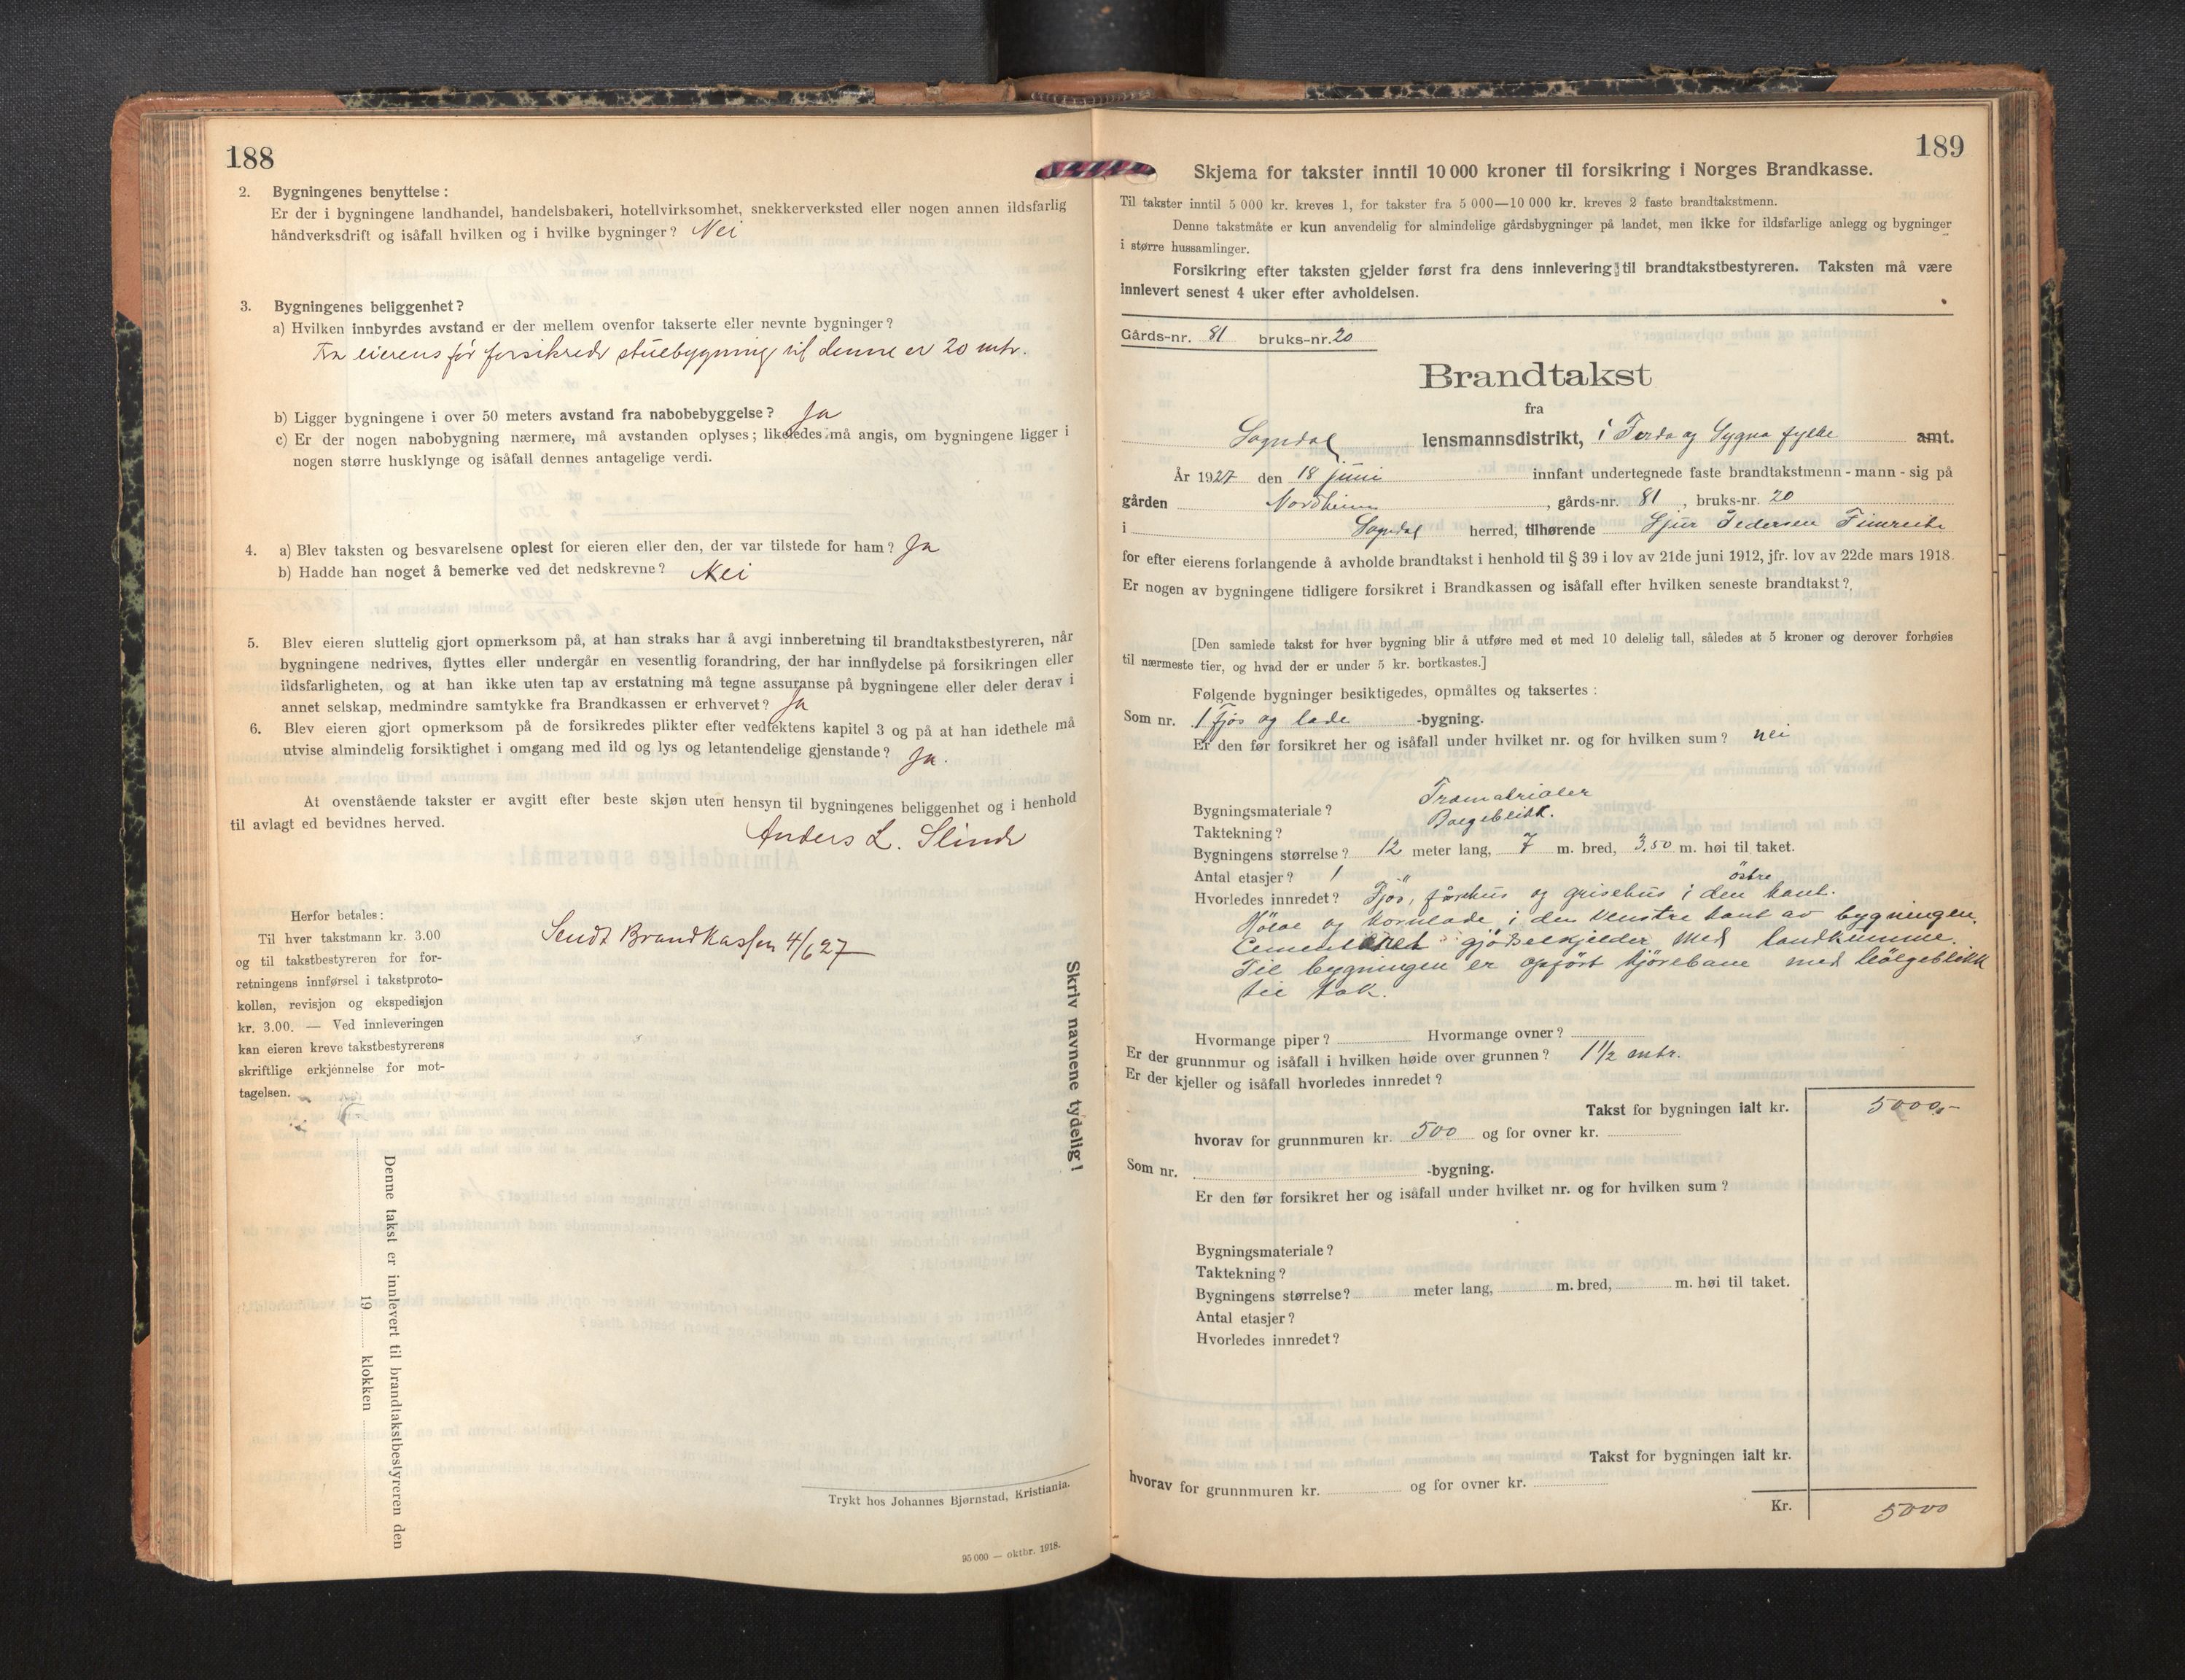 188
2. Bygningenes benyttelse:
Er der i bygningene landhandel, handelsbakeri, hotellvirksomhet, snekkerverksted eller nogen annen ildsfarlig
håndverksdrift og isåfall hvilken og i hvilke bygninger? Nei
3. Bygningenes beliggenhet?
a) Hvilken innbyrdes avstand er der mellem ovenfor takserte eller nevnte bygninger?
Fra eierens før forsikrede stuebygning til denne er 20 mtr.
b) Ligger bygningene i over 50 meters avstand fra nabobebyggelse? Ja
c) Er der nogen nabobygning nærmere, må avstanden oplyses; likeledes må angis, om bygningene ligger i
nogen større husklynge og isåfall dennes antagelige verdi.
4. a) Blev taksten og besvarelsene oplest for eieren eller den, der var tilstede for ham? Ja
b) Hadde han noget å bemerke ved det nedskrevne? Nei
5. Blev eieren sluttelig gjort opmerksom på, at han straks har å avgi innberetning til brandtakstbestyreren, når
bygningene nedrives, flyttes eller undergår en vesentlig forandring, der har innflydelse på forsikringen eller
ildsfarligheten, og at han ikke uten tap av erstatning må tegne assuranse på bygningene eller deler derav i
annet selskap, medmindre samtykke fra Brandkassen er erhvervet? Ja
6. Blev eieren gjort opmerksom på de forsikredes plikter efter vedtektens kapitel 3 og på at han idethele må
utvise almindelig forsiktighet i omgang med ild og lys og letantendelige gjenstande? Ja.
At ovenstående takster er avgitt efter beste skjøn uten hensyn til bygningenes beliggenhet og i henhold
til avlagt ed bevidnes herved.
Anders L. Slinde
Herfor betales:
Til hver takstmann kr. 3.00
og til takstbestyreren for for-
retningens innførsel i takstproto-
kollen, revisjon og ekspedisjon
kr. 3.00. — Ved innleveringen
kan eieren kreve takstbestyrerens
skriftlige erkjennelse for mot-
tagelsen.
Sendt Brandkassen 4/6 27
Skriv navnene tydelig!
Denne takst er innlevert til brandtakstbestyreren den
19 klokken
Trykt hos Johannes Bjørnstad, Kristiania.
95 000 — oktbr. 1918.
189
Skjema for takster inntil 10 000 kroner til forsikring i Norges Brandkasse.
Til takster inntil 5 000 kr. kreves 1, for takster fra 5 000—10 000 kr. kreves 2 faste brandtakstmenn.
Denne takstmåte er kun anvendelig for almindelige gårdsbygninger på landet, men ikke for ildsfarlige anlegg og bygninger
i større hussamlinger.
Forsikring efter taksten gjelder først fra dens innlevering til brandtakstbestyreren. Taksten må være
innlevert senest 4 uker efter avholdelsen.
Gårds-nr. 81 bruks-nr. 20
Brandtakst
fra
Sogndal lensmannsdistrikt, i Firda og Sygna fylke amt.
År 1927 den 18 juni innfant undertegnede faste brandtakstmenn - mann - sig på
gården Nordheim, gårds-nr. 81, bruks-nr. 20
i Sogndal herred, tilhørende Sjur Pedersen Fimreite
for efter eierens forlangende å avholde brandtakst i henhold til § 39 i lov av 21de juni 1912, jfr. lov av 22de mars 1918.
Er nogen av bygningene tidligere forsikret i Brandkassen og isåfall efter hvilken seneste brandtakst?
[Den samlede takst for hver bygning blir å utføre med et med 10 delelig tall, således at 5 kroner og derover forhøies
til nærmeste tier, og hvad der er under 5 kr. bortkastes.]
Følgende bygninger besiktigedes, opmåltes og taksertes:
Som nr. 1 fjøs og lade -bygning.
Er den før forsikret her og isåfall under hvilket nr. og for hvilken sum? nei
Bygningsmateriale? Træmatrialer
Taktekning? Bølgeblikk.
Bygningens størrelse? 12 meter lang, 7 m. bred, 3,50 m. høi til taket.
Antal etasjer? 1
Hvorledes innredet? Fjös, fårehus og grisehus i den östre kant.
Höloe og kornlade i den venstre kant av bygningen.
Cementeret gjödselkjelder med landkumme.
Til bygningen er opfört kjörebane med bölgeblikk
til tak.
Hvormange piper? Hvormange ovner?
Er der grunnmur og isåfall i hvilken høide over grunnen? 1 1/2 mtr.
Er der kjeller og isåfall hvorledes innredet?
Takst for bygningen ialt kr. 5000,-
hvorav for grunnmuren kr. 500 og for ovner kr.
Som nr. -bygning.
Er den før forsikret her og isåfall under hvilket nr. og for hvilken sum?
Bygningsmateriale?
Taktekning?
Bygningens størrelse? meter lang, m. bred, m. høi til taket.
Antal etasjer?
Hvorledes innredet?
Takst for bygningen ialt kr.
hvorav for grunnmuren kr. og for ovner kr.
Kr. 5000